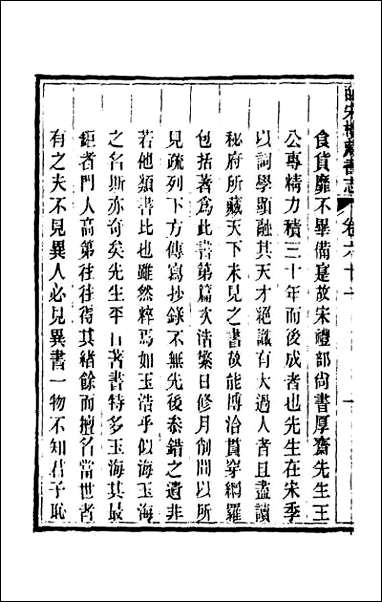 皕宋樓藏書志 卷六十
食貨靡不畢備寔故宋禮部尚書厚齋先生王
公專精力積三十年而後成者也先生在宋季
以詞學顯融其天才絕識有大過人者且盡讀
秘府所藏天下未見之書故能博洽貫穿綱羅
包括著為此書第篇次浩繁日修月削間以所
見疏列下方傳寫抄錄不無先後叅錯之遺非
若他類書比也雖然粹焉如玉浩乎似海玉海
之名斯亦奇矣先生平日著書特多玉海其最
鉅者門人高第往往得其緒餘而擅名當世者
有之夫不見異人必見異書一物不知君子恥